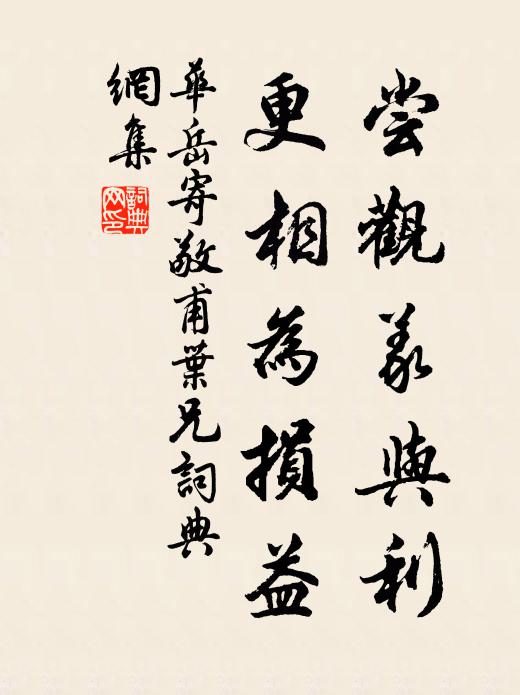 尝觀義與利
更相為損益
華岳寄敬甫葉兄詞典
網集
詞典
网印